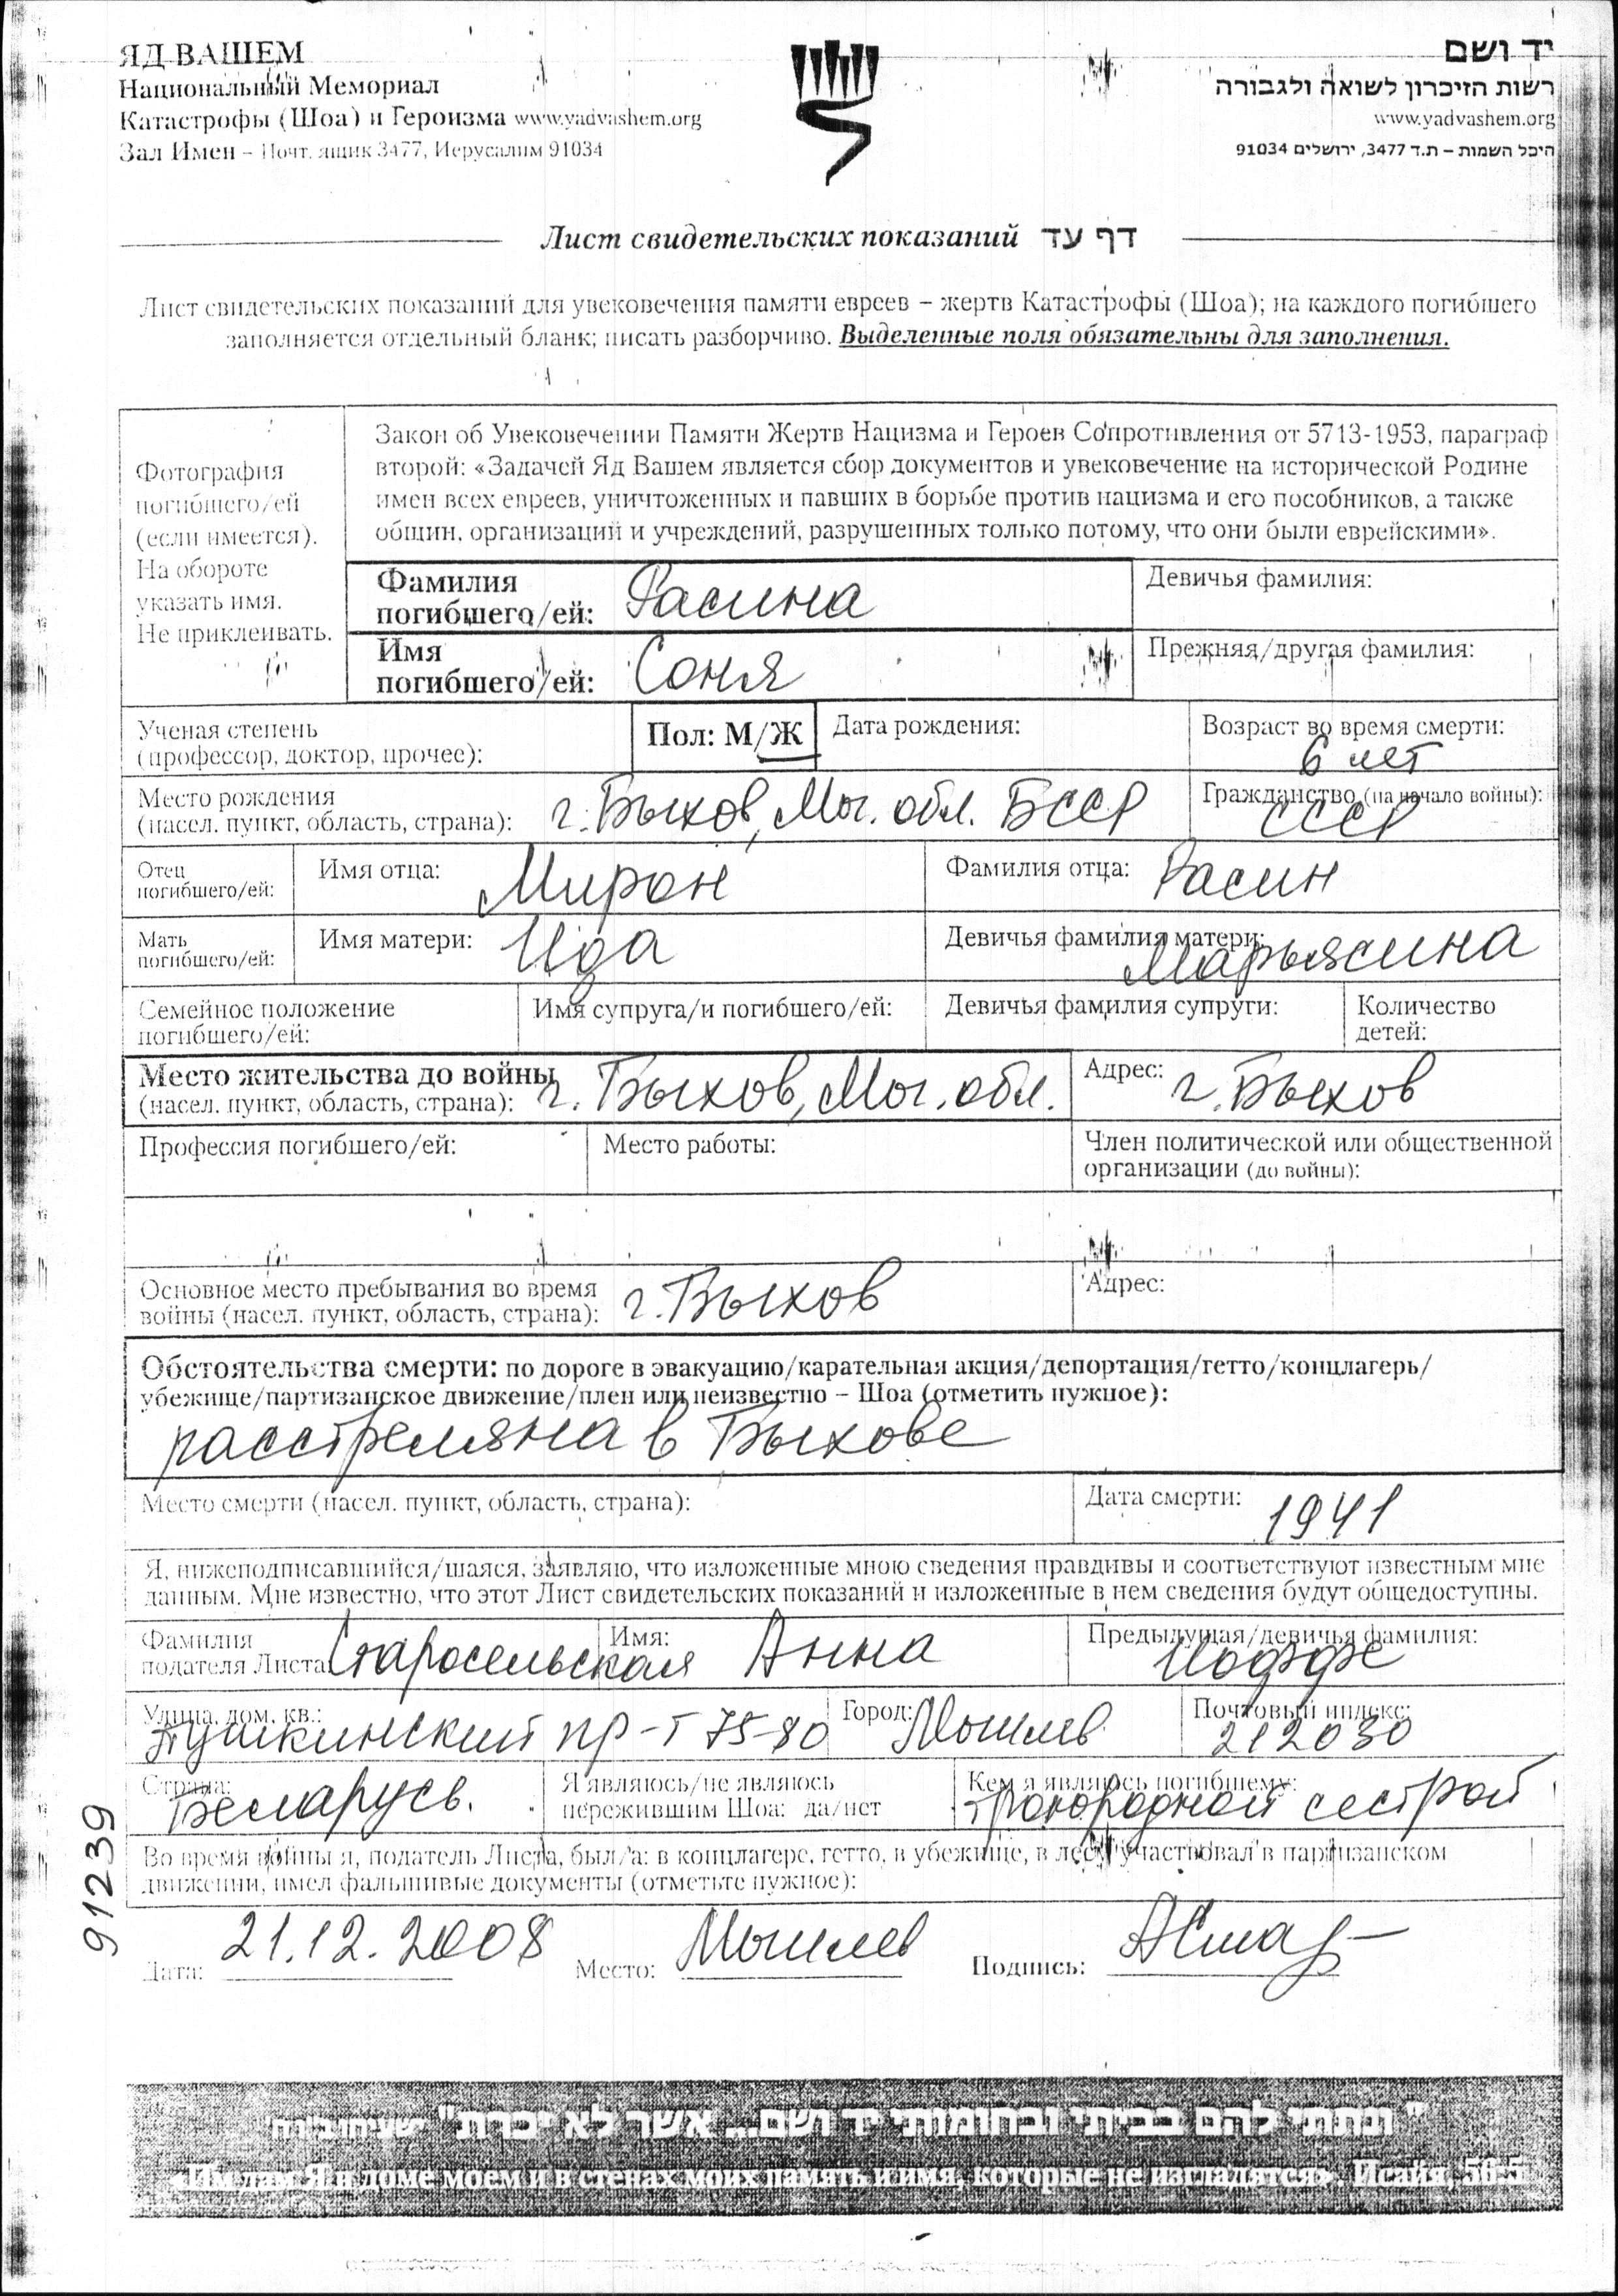 ЯД ВАШЕМ
Национальный Мемориал
Катастрофы (Шоа) и Героизма www.yadvashem.org
Зал Имен – Почт. ящик 3477, Иерусалим 91034
יד ושם
רשות הזיכרון לשואה ולגבורה
www.yadvashem.org
היכל השמות – ת.ד 3477, ירושלים 91034
Лист свидетельских показаний דף עד
Лист свидетельских показаний для увековечения памяти евреев – жертв Катастрофы (Шоа); на каждого погибшего
заполняется отдельный бланк; писать разборчиво. Выделенные поля обязательны для заполнения.
Фотография
погибшего/ей
(если имеется).
На обороте
указать имя.
Не приклеивать.
Закон об Увековечении Памяти Жертв Нацизма и Героев Сопротивления от 5713-1953, параграф
второй: «Задачей Яд Вашем является сбор документов и увековечение на исторической Родине
имен всех евреев, уничтоженных и павших в борьбе против нацизма и его пособников, а также
общин, организаций и учреждений, разрушенных только потому, что они были еврейскими».
Фамилия
погибшего/ей: Расина
Девичья фамилия:
Имя
погибшего/ей: Соня
Прежняя/другая фамилия:
Ученая степень
(профессор, доктор, прочее):
Пол: М/Ж
Дата рождения:
Возраст во время смерти:
6 лет
Место рождения
(насел. пункт, область, страна): г. Быхов, Мог. обл. БССР
Гражданство (на начало войны):
СССР
Отец
погибшего/ей:
Имя отца: Мирон
Фамилия отца: Расин
Мать
погибшего/ей:
Имя матери: Ида
Девичья фамилия матери:
Марьясина
Семейное положение
погибшего/ей:
Имя супруга/и погибшего/ей:
Девичья фамилия супруги:
Количество
детей:
Место жительства до войны
(насел. пункт, область, страна): г. Быхов, Мог. обл.
Адрес: г. Быхов
Профессия погибшего/ей:
Место работы:
Член политической или общественной
организации (до войны):
Основное место пребывания во время
войны (насел. пункт, область, страна): г. Быхов
Адрес:
Обстоятельства смерти: по дороге в эвакуацию/карательная акция/депортация/гетто/концлагерь/
убежище/партизанское движение/плен или неизвестно – Шоа (отметить нужное):
расстреляна в Быхове
Место смерти (насел. пункт, область, страна):
Дата смерти: 1941
Я, нижеподписавшийся/шаяся, заявляю, что изложенные мною сведения правдивы и соответствуют известным мне
данным. Мне известно, что этот Лист свидетельских показаний и изложенные в нем сведения будут общедоступны.
Фамилия
подателя Листа: Старосельская
Имя: Анна
Предыдущая/девичья фамилия:
Иоффе
Улица, дом, кв.:
Пушкинский пр-т 75-80
Город: Могилев
Почтовый индекс:
212030
Страна:
Беларусь.
Я являюсь/не являюсь
пережившим Шоа: да/нет
Кем я являюсь погибшему:
троюродной сестрой
Во время войны я, податель Листа, был/а: в концлагере, гетто, в убежище, в лесу, участвовал в партизанском
движении, имел фальшивые документы (отметьте нужное):
Дата: 21.12.2008
Место: Могилев
Подпись:
91239
"ונתתי להם בביתי ובחומותי יד ושם... אשר לא יכרת" ישעיהו נו ה
«Им дам Я в доме моем и в стенах моих память и имя, которые не изгладятся». Исайя, 56:5